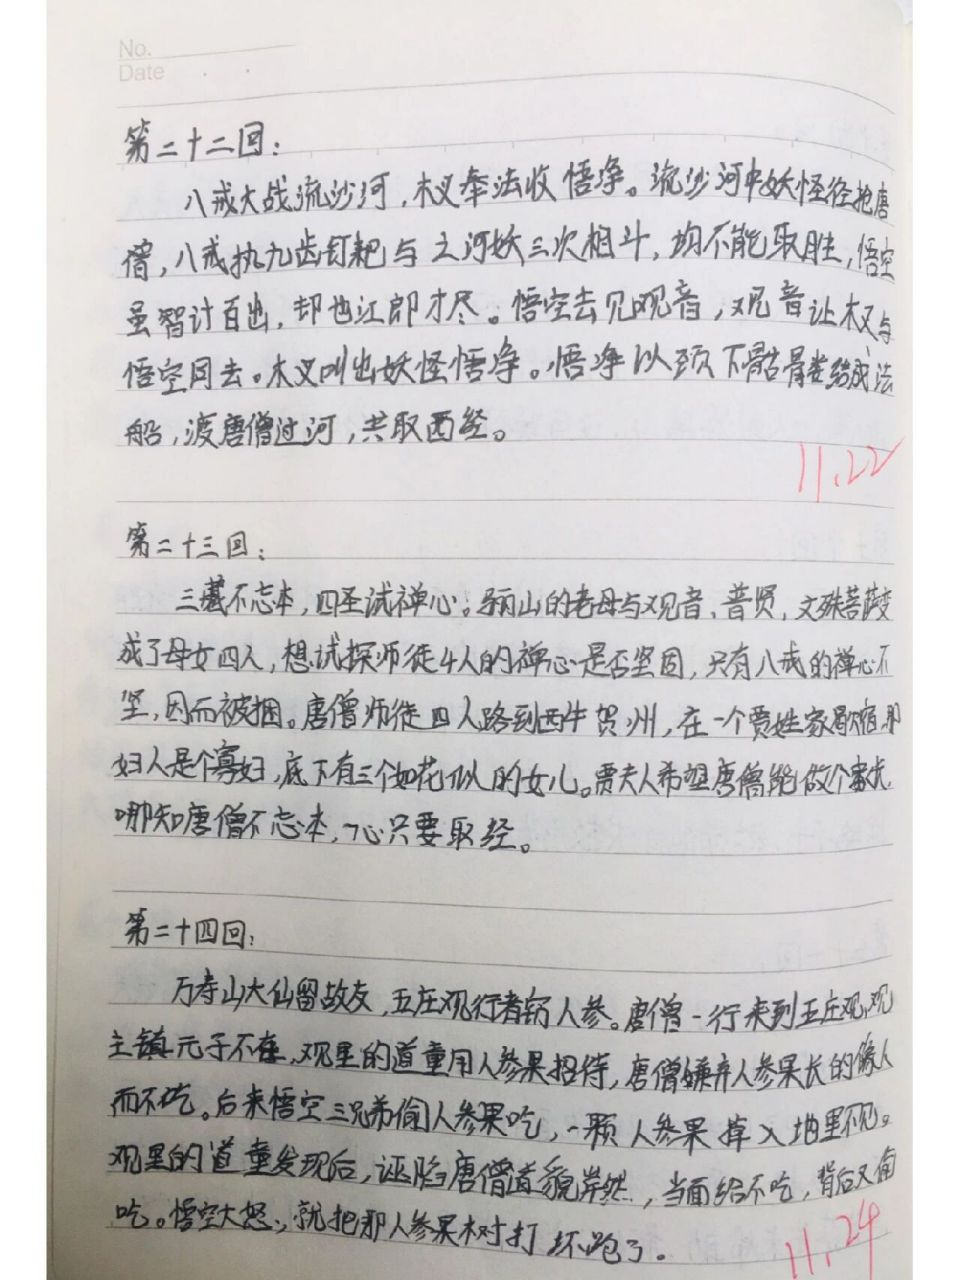 No.
Date
第二十二回：
八戒大战流沙河，木叉奉法收悟净。流沙河中妖怪径抢唐
僧，八戒执九齿钉耙与之河妖三次相斗，均不能取胜，悟空
虽智计百出，却也江郎才尽。悟空去见观音，观音让木叉与
悟空同去。木叉叫出妖怪悟净。悟净以颈下骷骨娄结成法
船，渡唐僧过河，共取西经。
11.22
第二十三回：
三藏不忘本，四圣试禅心。骊山的老母与观音、普贤，文殊菩萨变
成了母女四人，想试探师徒4人的禅心是否坚固，只有八戒的禅心不
坚，因而被捆。唐僧师徒四人路到西牛贺州，在一个贾姓家歇宿，那
妇人是个寡妇，底下有三个如花似的女儿。贾夫人希望唐僧能做个家长，
哪知唐僧不忘本，一心只要取经。
第二十四回：
万寿山大仙留故友，五庄观行者窃人参。唐僧一行来到五庄观，观
主镇元子不在，观里的道童用人参果招待，唐僧嫌弃人参果长的像人
而不吃。后来悟空三兄弟偷人参果吃，一颗人参果掉入地里不见。
观里的道童发现后，诬陷唐僧道貌岸然，当面给不吃，背后又偷
吃。悟空大怒，就把那人参果树打坏跑了。
11.24